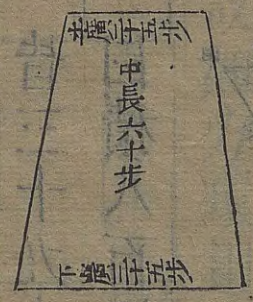 上廣二十五步
中長六十步
下廣三十五步